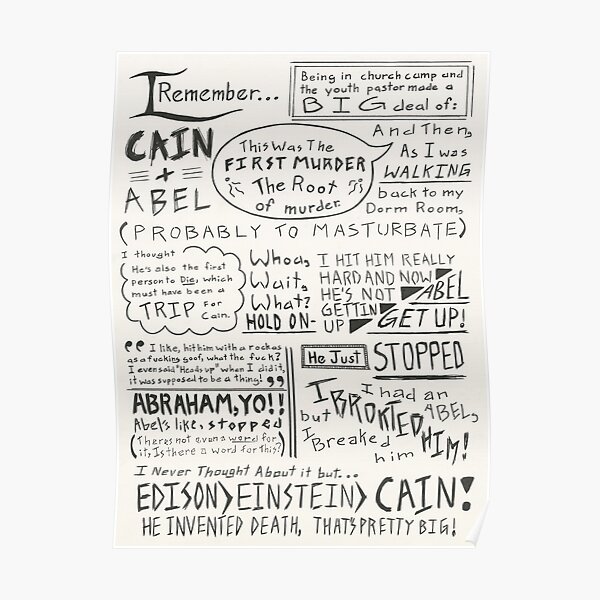 I Remember...
Being in church camp and
the youth pastor made a
BIG deal of:
CAIN
+
ABEL
This Was The
FIRST MURDER
The Root
of murder.
And Then,
As I was
WALKING
back to my
Dorm Room,
(PROBABLY TO MASTURBATE)
I thought
He's also the first
person to Die, which
must have been a
TRIP For
Cain.
Whoa,
Wait,
What?
HOLD ON-
I HIT HIM REALLY
HARD AND NOW
HE'S NOT
GETTIN
UP
ABEL
GET UP!
"I like, hit him with a rock as
as a fucking goof, what the fuck?
I even said "Heads up" when I did it,
it was supposed to be a thing!"
ABRAHAM, YO!!
Abel's like, stopped
(Theres not even a word for
it, Is there a word for This?)
He Just STOPPED
I had an
ABEL,
but
I BROKTED HIM!
I Breaked
him
I Never Thought About it but...
EDISON> EINSTEIN> CAIN!
HE INVENTED DEATH, THAT'S PRETTY BIG!